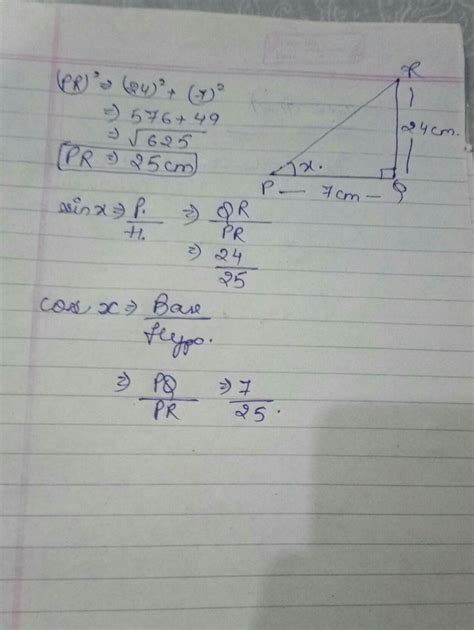 (PR)² ⇒ (24)² + (7)²
⇒ 576 + 49
⇒ √625
PR ⇒ 25cm
R
24cm.
x.
P — 7cm — Q
sin x ⇒ P. ⇒ QR
H. PR
⇒ 24
25
cos x ⇒ Base
Hypo.
⇒ PQ ⇒ 7
PR 25.